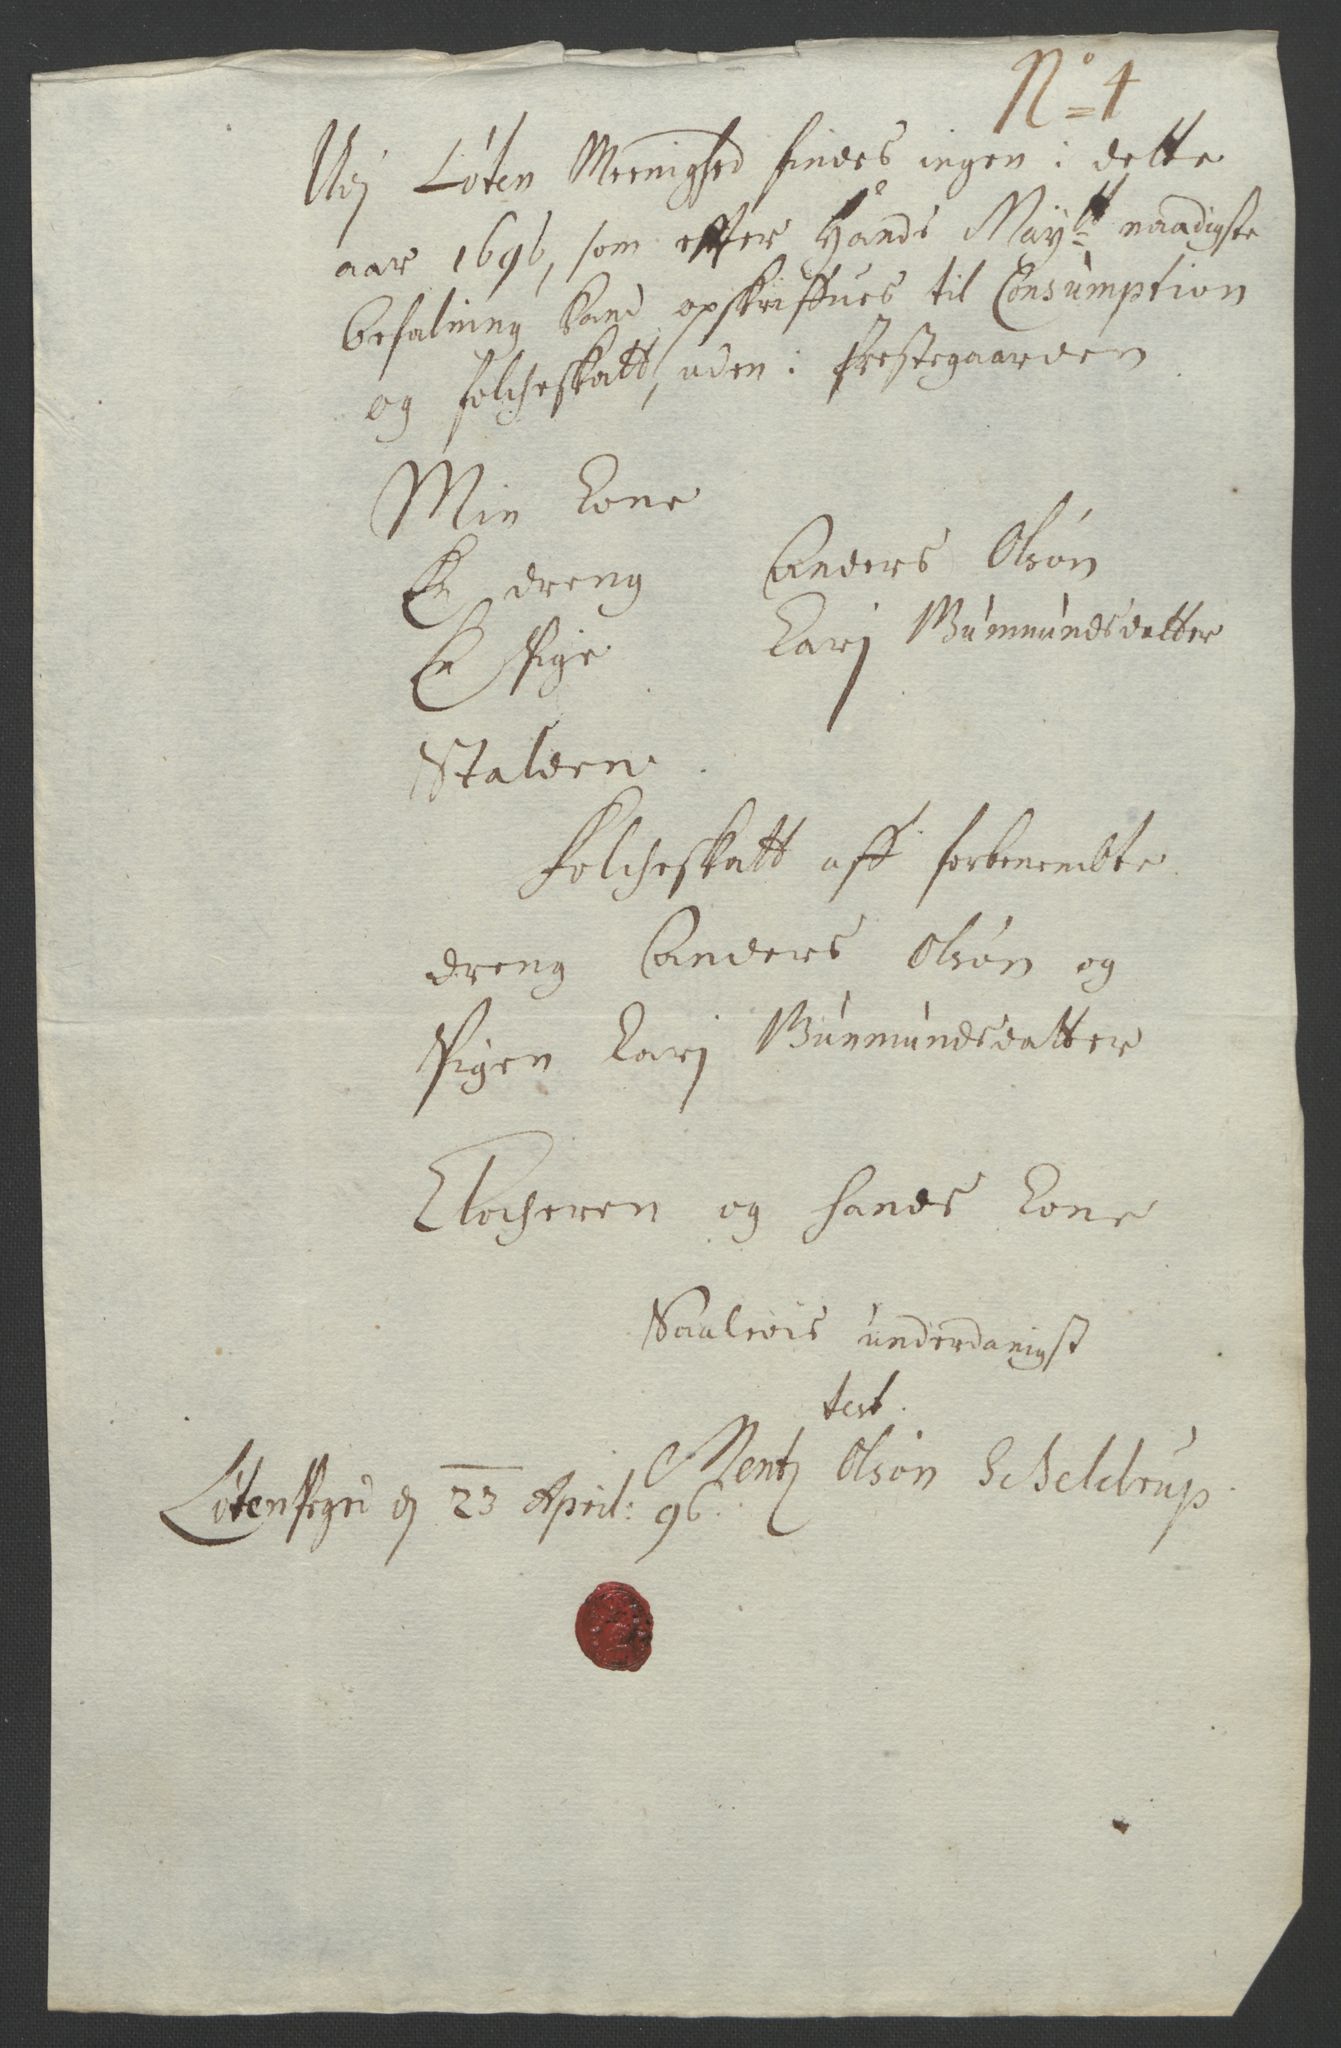 No 4
Udj Løten Meenighed findes ingen i dette
aar 1696, som efter Hands Mayts naadigste
befalning kand opskriffues til Consumption
og folcheskatt, uden i Prestegaarden
Min Kone
En dreng Anders Olsøn
En Pige Karj Gunmundsdatter
Stalden
Folcheskatt aff forbenembte
dreng Anders Olsøn og
Pigen Karj Gunmundsdatter
Klocheren og hands Kone
Saaleois underdanigst
test.
Mentz Olsøn Scheldrup
Løten Pregrd dj 23 April: 96.